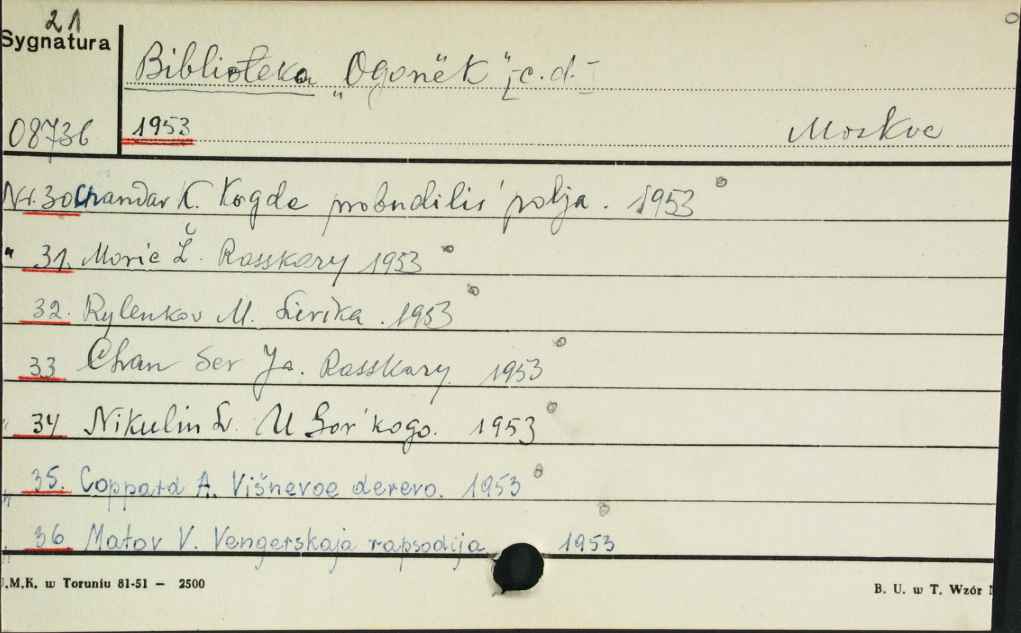 21
Sygnatura
Biblioteka „Ogonëk" [c.d.]
08736 1953 Moskva
Nr. 30 Chandar K. Kogda probudilis' polja. 1953
" 31. Moric Ž. Rasskazy 1953
32. Rylenkov M. Lirika. 1953
33 Chan Ser Ja. Rasskazy 1953
" 34 Nikulin L. U Gor'kogo. 1953
" 35. Coppard A. Višnevoe derevo. 1953
" 36 Matov V. Vengerskaja rapsodija 1953
.M.K. w Toruniu 81-51 — 2500
B. U. w T. Wzór